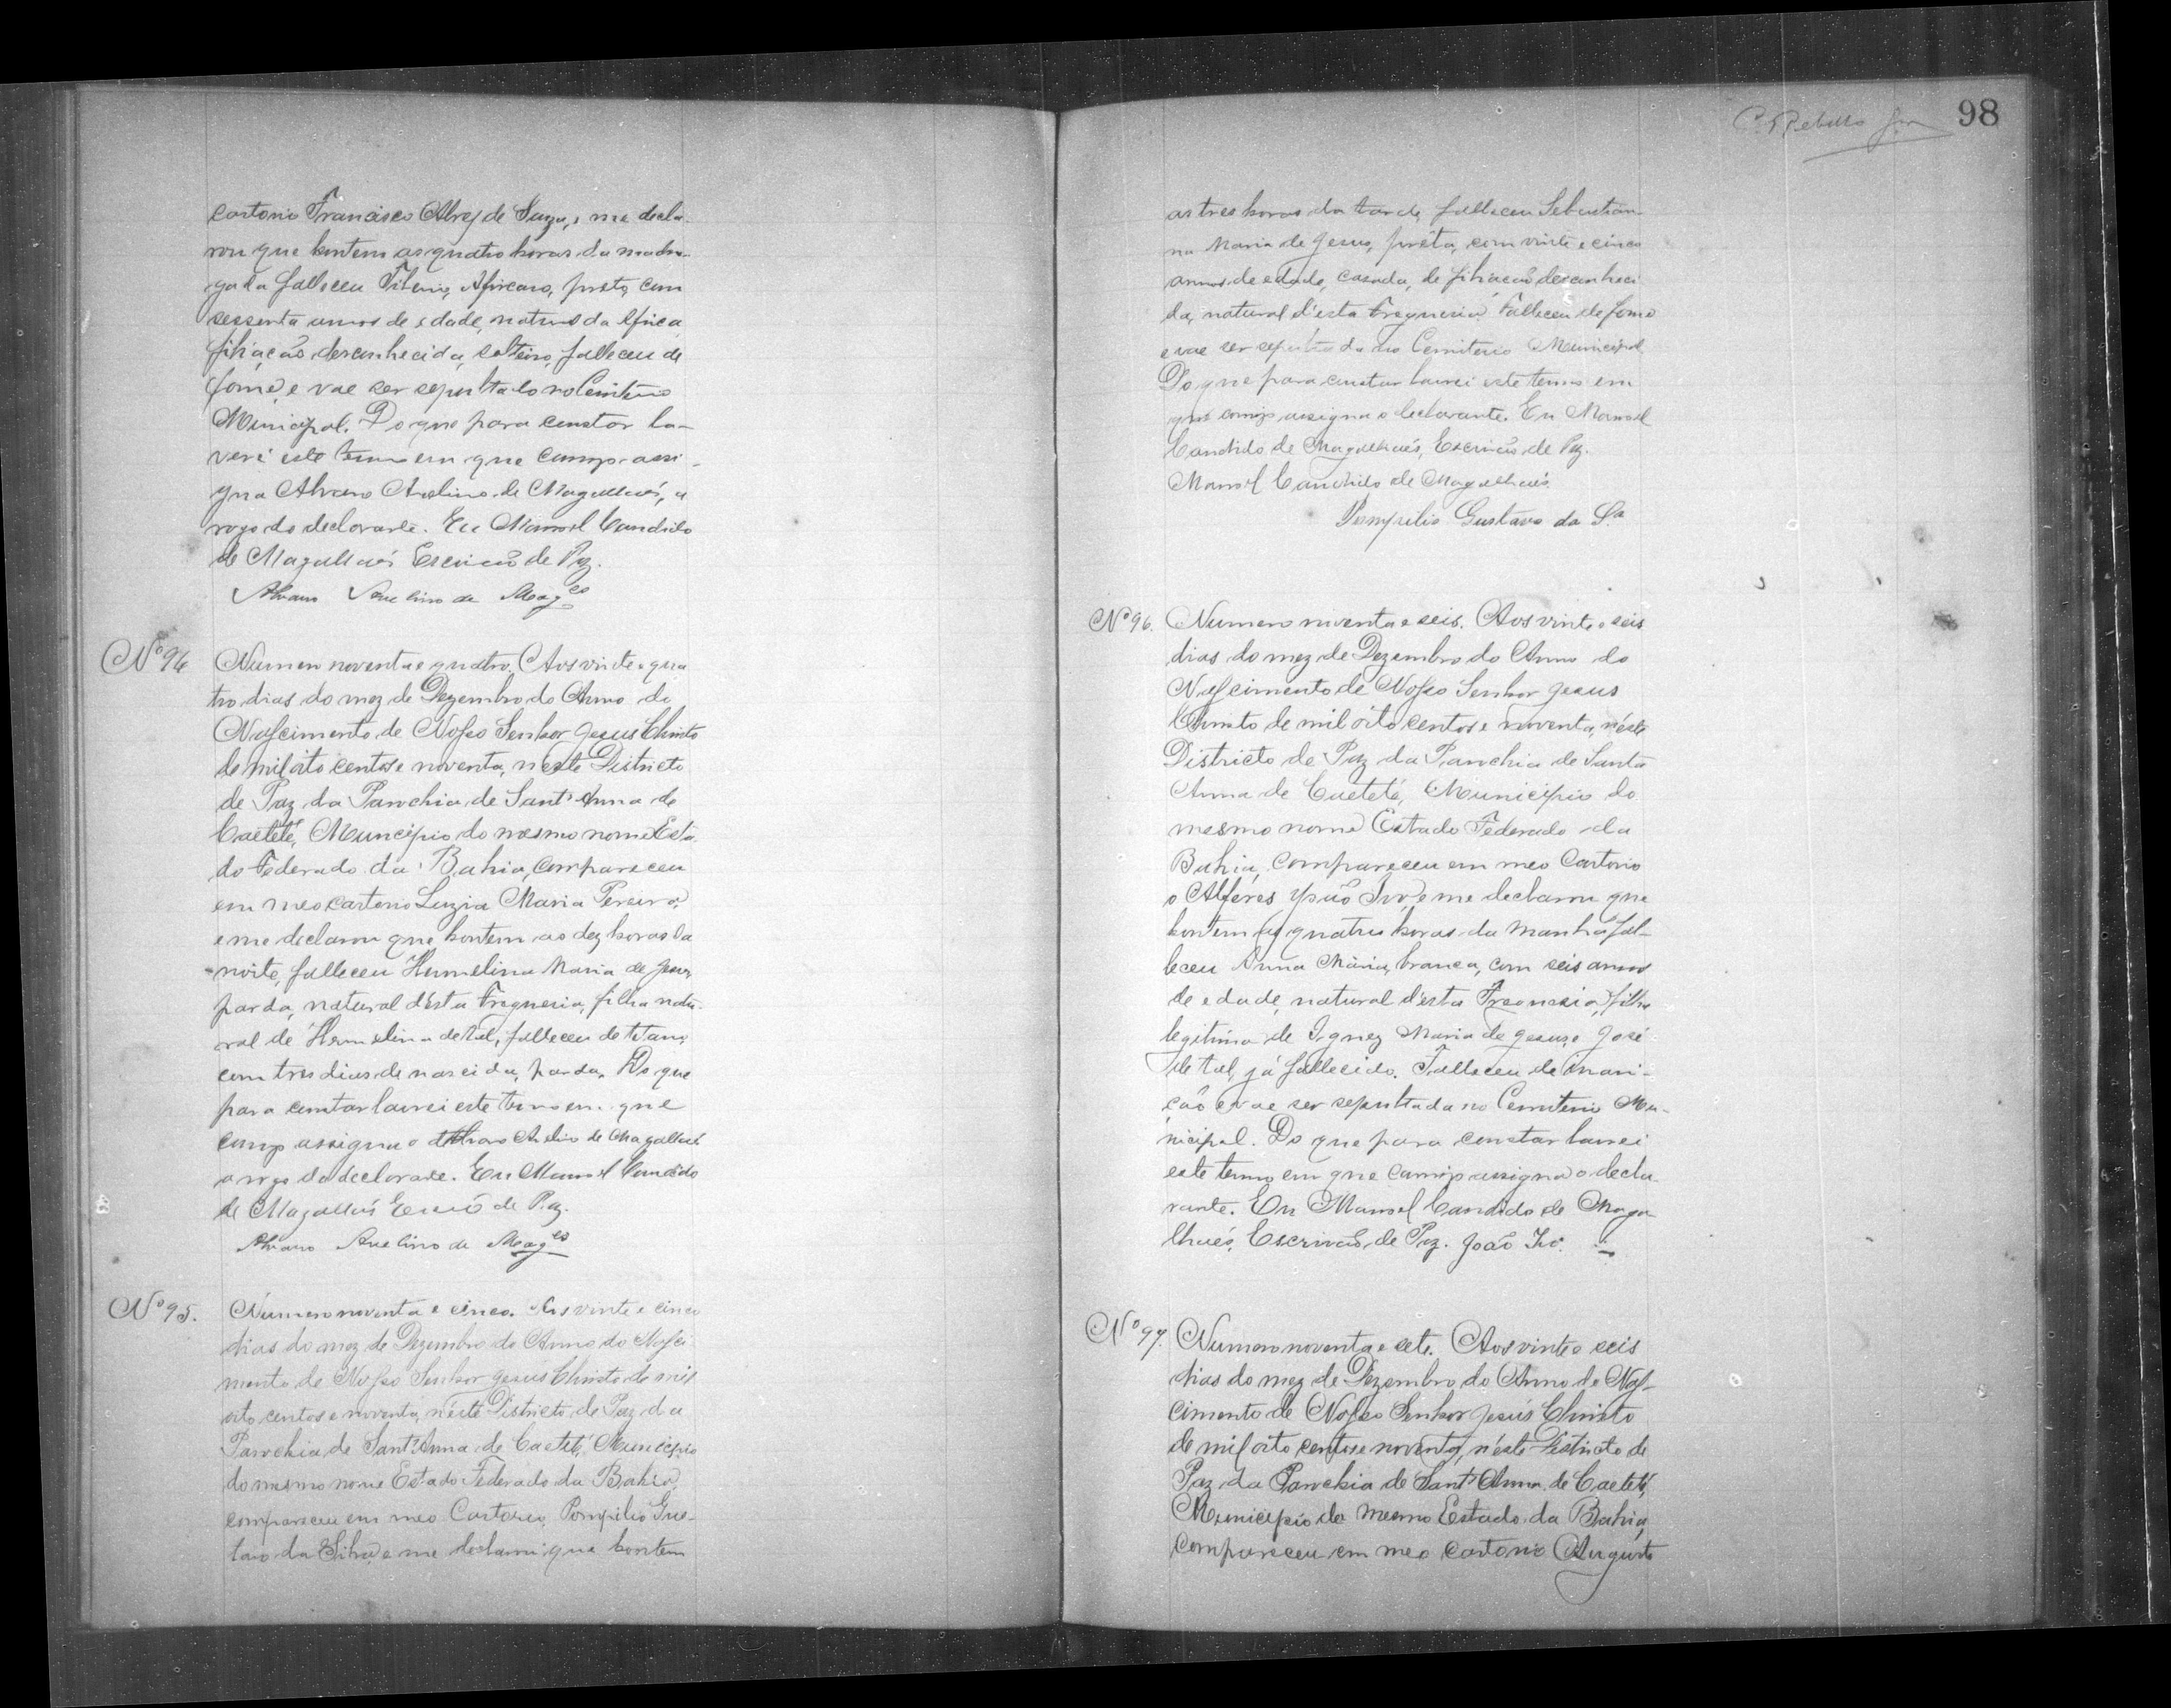 cartorio Francisco Alves de Souza, e me decla-
rou que hontem as quatro horas da madru-
gada falleceu Africano, preto, com
sessenta annos de edade, natural da Africa
filiação desconhecida, solteiro, falleceu de
fome, e vae ser sepultado no Cemiterio
Municipal. Do que para constar la-
vrei este termo em que comigo assi-
gna Alvaro Avelino de Magalhaés, a
rogo do declarante. Eu Manoel Candido
de Magalhaés Escrivaõ de Paz.
Alvaro Avelino de Mag.es
Nº 94
Numero noventa e quatro. Aos vinte e qua
tro dias do mez de Dezembro do Anno do
Nascimento de Nosso Senhor Jesus Christo
de mil oito centos e noventa, n'este Districto
de Paz da Parochia de Sant'Anna de
Caeteté, Municipio do mesmo nome Esta
do Federado da Bahia, compareceu
em meo cartorio Luzia Maria Pereira,
e me declarou que hontem as dez horas da
noite, falleceu Hermelina Maria de Jesus,
parda, natural d'esta Freguesia, filha natu-
ral de Hermelina de tal, falleceu de tetano
com tres dias de nascida, parda. Do que
para constar lavrei este termo em que
comigo assigna o Alvaro Avelino de Magalhaés
a rogo da declarante. Eu Manoel Candido
de Magalhaés Escrivaõ de Paz.
Alvaro Avelino de Mag.es
Nº 95.
Numero noventa e cinco. Aos vinte e cinco
dias do mez de Dezembro do Anno do Nasci
mento de Nosso Senhor Jesus Christo de mil
oito centos e noventa, n'este Districto de Paz da
Parochia de Sant'Anna de Caeteté, Municipio
do mesmo nome Estado Federado da Bahia,
compareceu em meo Cartorio, Pompilio Gus-
tavo da Silva, e me declarou que hontem
98
as tres horas da tarde, falleceu Sebastian-
na Maria de Jesus, preta, com vinte e cinco
annos de edade, casada, de filiacaõ desconheci
da, natural d'esta Freguesia. Falleceu de fome
e vae ser sepultada no Cemiterio Municipal.
Do que para constar lavrei este termo em
que comigo assigna o declarante. Eu Manoel
Candido de Magalhaés, Escrivaõ de Paz.
Manoel Candido de Magalhaés.
Pompilio Gustavo da S.a
Nº 96.
Numero noventa e seis. Aos vinte e seis
dias do mez de Dezembro do Anno do
Nascimento de Nosso Senhor Jesus
Christo de mil oito centos e noventa, n'este
Districto de Paz da Parochia de Santa
Anna de Caeteté, Municipio do
mesmo nome Estado Federado da
Bahia, compareceu em meo Cartorio
o Alferes Ivo, e me declarou que
hontem as quatro horas da manhã fal-
leceu Anna Maria, branca, com seis annos
de edade, natural d'esta Freguesia, filha
legitima de Ignez Maria de Jesus, e José
de tal, já fallecido. Falleceu de inani-
cão e vae ser sepultada no Cemiterio Mu-
nicipal. Do que para constar lavrei
este termo em que comigo assigna o decla-
rante. Eu Manoel Candido de Maga
lhaés, Escrivaõ de Paz. Joaõ Ivo.
Nº 97.
Numero noventa e sete. Aos vinte e seis
dias do mez de Dezembro do Anno do Nas-
cimento de Nosso Senhor Jesus Christo
de mil oito centos e noventa, n'este Districto de
Paz da Parochia de Sant'Anna de Caeteté,
Municipio do mesmo Estado da Bahia,
compareceu em meo cartorio Augusto